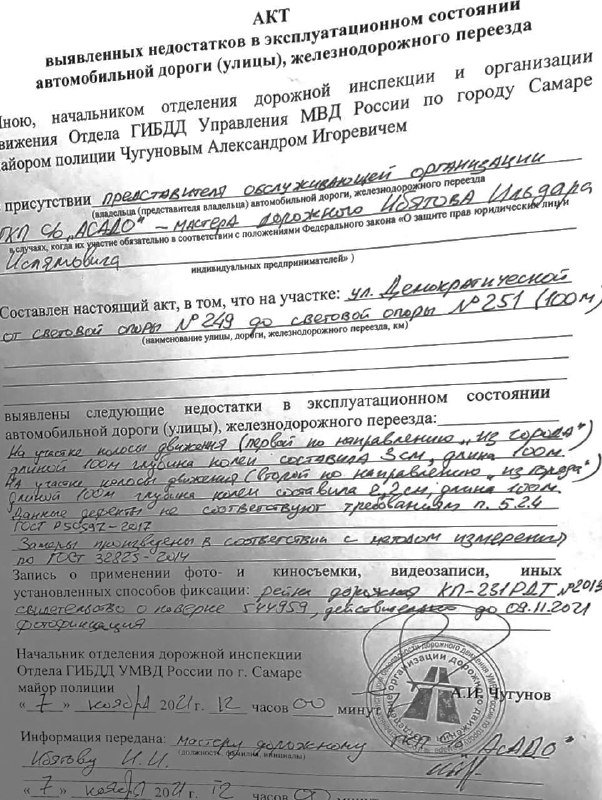 АКТ
выявленных недостатков в эксплуатационном состоянии
автомобильной дороги (улицы), железнодорожного переезда
Мною, начальником отделения дорожной инспекции и организации
движения Отдела ГИБДД Управления МВД России по городу Самаре
майором полиции Чугуновым Александром Игоревичем
присутствии представителя обслуживающей организации
(владельца (представителя владельца) автомобильной дороги, железнодорожного переезда
ГКП СО „АСАДО" – мастера дорожного Ибятова Ильдара
в случаях, когда их участие обязательно в соответствии с положениями Федерального закона «О защите прав юридических лиц и
Ислямовича
индивидуальных предпринимателей» )
Составлен настоящий акт, в том, что на участке: ул. Демократической
от световой опоры №249 до световой опоры №251 (100м)
(наименование улицы, дороги, железнодорожного переезда, км)
выявлены следующие недостатки в эксплуатационном состоянии
автомобильной дороги (улицы), железнодорожного переезда:
На участке полосы движения (первой по направлению „из города")
длиной 100м глубина колеи составила 3см, длина 100м.
На участке полосы движения (второй по направлению „из города")
длиной 100м глубина колеи составила 2,2см, длина 100м.
Данные дефекты не соответствуют требованиям п. 5.2.4
ГОСТ Р 50597-2017
Замеры произведены в соответствии с методом измерений
по ГОСТ 32825-2014
Запись о применении фото- и киносъемки, видеозаписи, иных
установленных способов фиксации: рейка дорожная КП-231РДТ №2013
свидетельство о поверке 544959, действительно до 09.11.2021
фотофиксация
Начальник отделения дорожной инспекции
Отдела ГИБДД УМВД России по г. Самаре
майор полиции
А.И. Чугунов
« 7 » ноября 2021 г. 12 часов 00 минут
Информация передана: мастеру дорожному ГКП СО „АСАДО"
(должность, фамилия, инициалы)
Ибятову И.И.
« 7 » ноября 2021 г. 12 часов 00 минут